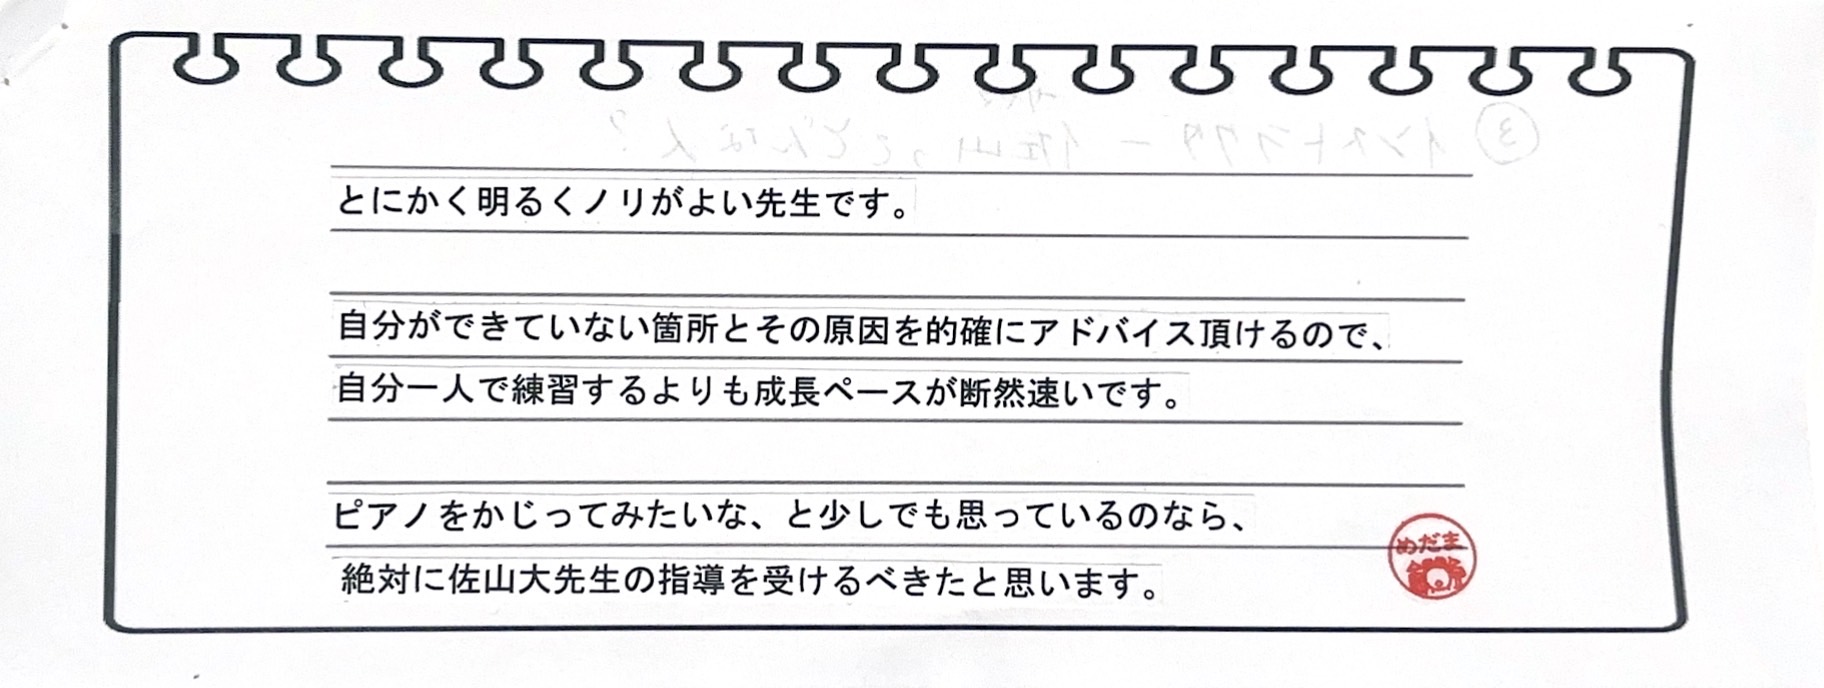 ③インストラクター佐山ってどんな人？
とにかく明るくノリがよい先生です。
自分ができていない箇所とその原因を的確にアドバイス頂けるので、
自分一人で練習するよりも成長ペースが断然速いです。
ピアノをかじってみたいな、と少しでも思っているのなら、
絶対に佐山大先生の指導を受けるべきたと思います。
めだま